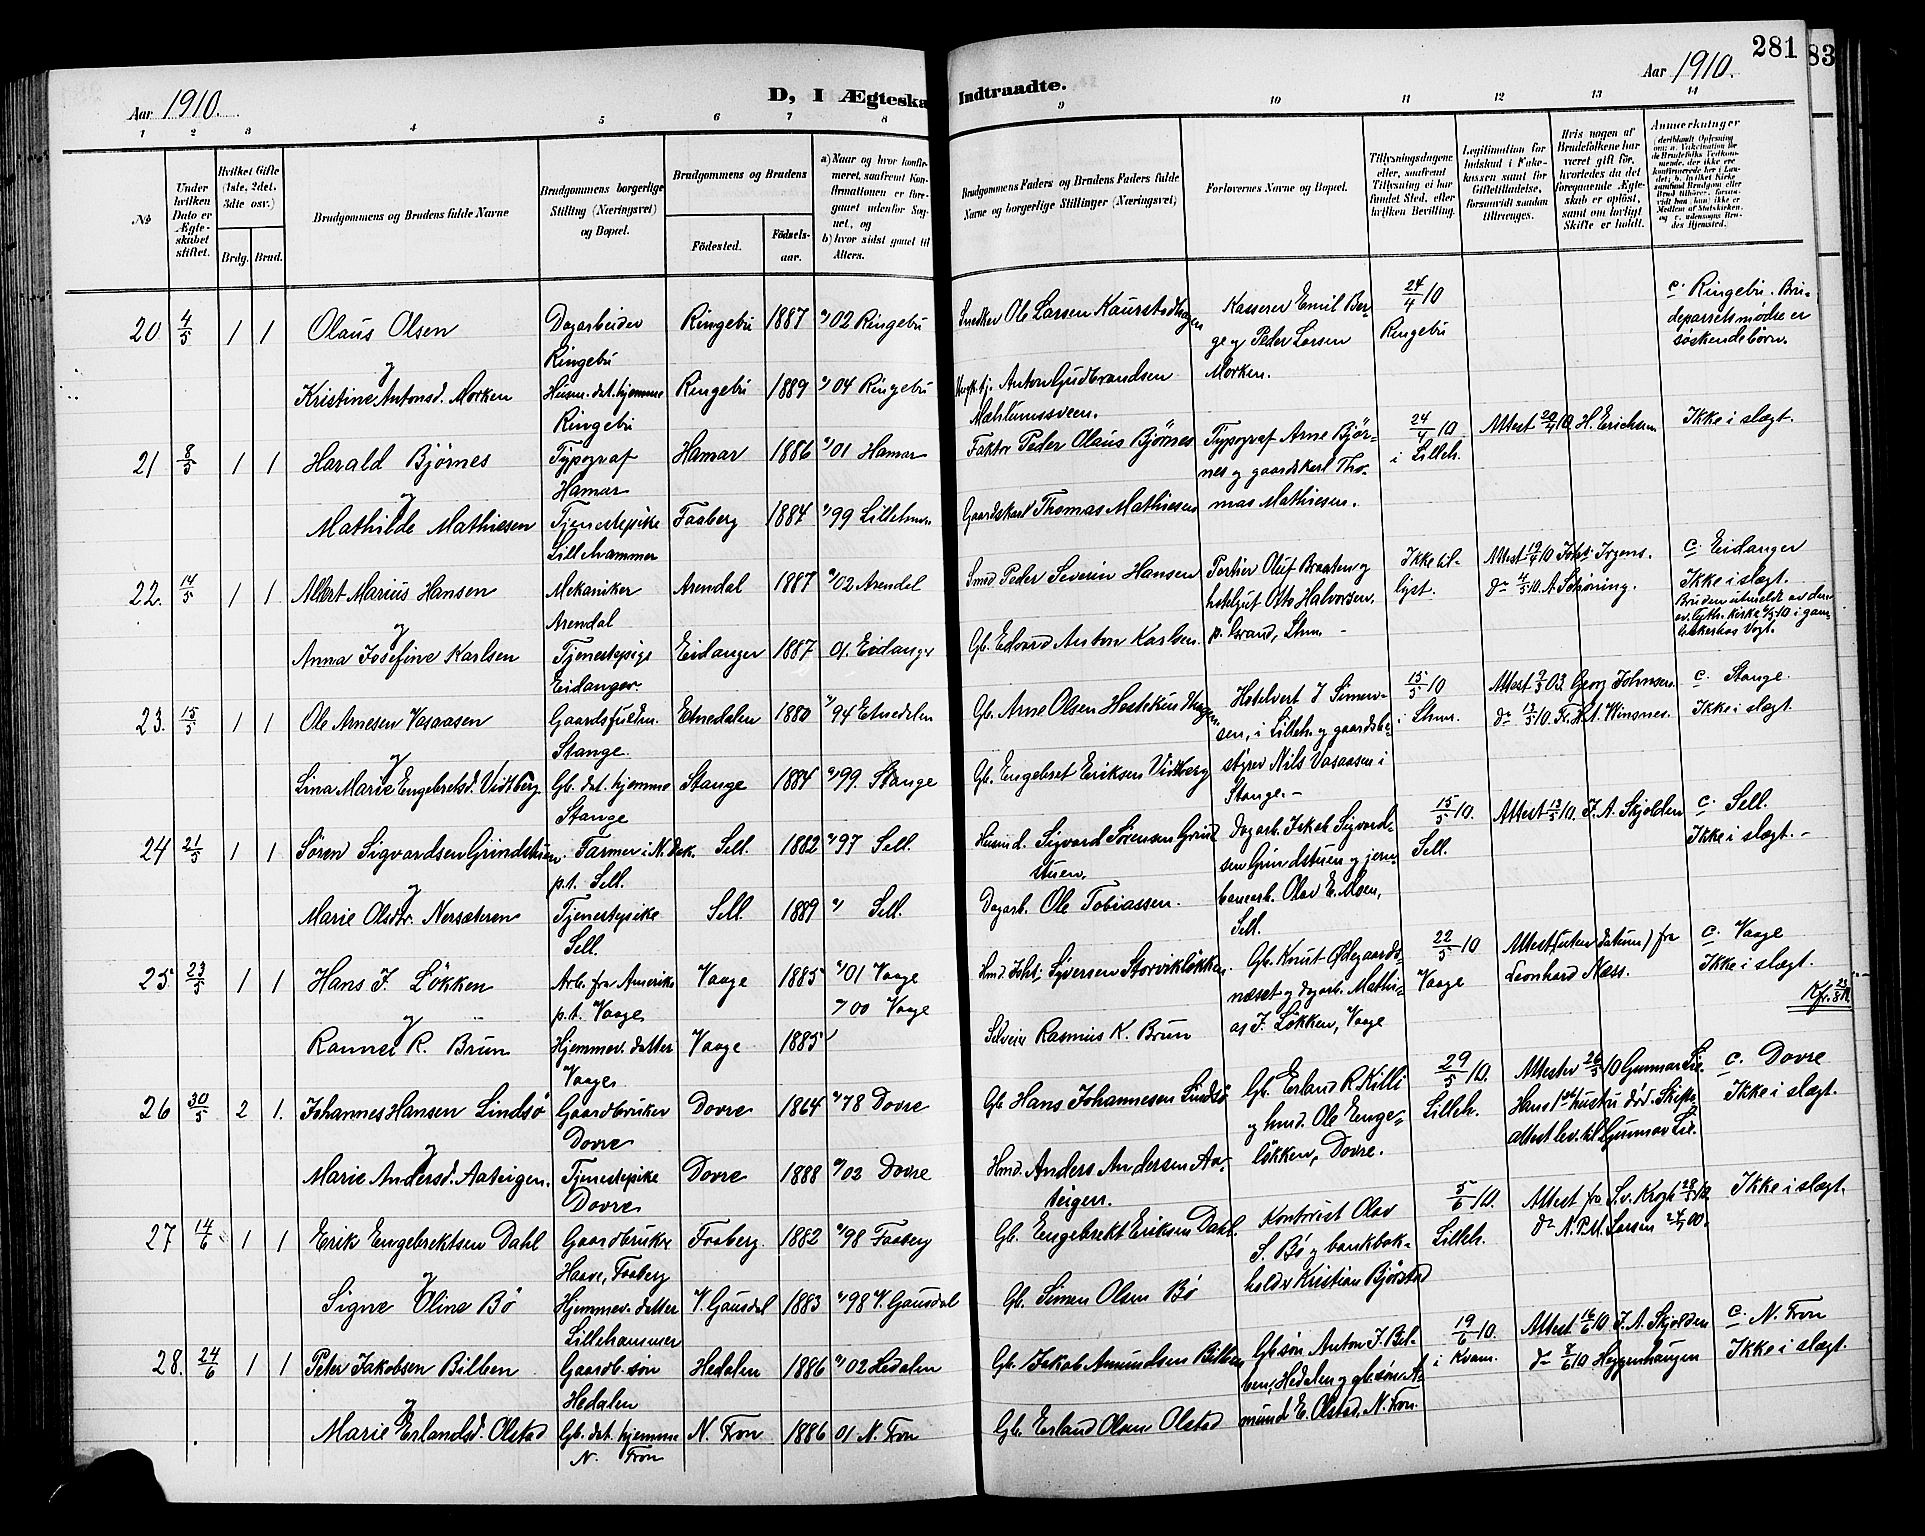 281
83
Aar 1910.
D, I Ægteska
Indtraadte.
Aar 1910.
1 2 3 4 5 6 7 8 9 10 11 12 13 14
No
Under hvilken Dato er Ægteskabet stiftet.
Hvilket Gifte (1ste, 2det, 3dte osv.)
Brdg. Brud.
Brudgommens og Brudens fulde Navne
Brudgommens borgerlige Stilling (Næringsvei) og Bopæl.
Brudgommens og Brudens
Födested.
Födselsaar.
a) Naar og hvor konfirmeret, saafremt Konfirmationen er foregaaet udenfor Sognet, og
b) hvor sidst gaaet til Alters.
Brudgommens Faders og Brudens Faders fulde Navne og borgerlige Stillinger (Næringsvei)
Forlovernes Navne og Bopæl.
Tillysningsdagene eller, saafremt Tillysning ei har fundet Sted, efter hvilken Bevilling.
Legitimation for Indskud i Enkekassen samt for Giftetilladelse, forsaavidt saadan tiltrænges.
Hvis nogen af Brudefolkene har været gift før, hvorledes da det foregaaende Ægteskab er opløst, samt om lovligt Skifte er holdt.
Anmærkninger
20 4/5 1 1 Olaus Olsen Dagarbeider Ringebu Ringebu 1887 02 Ringebu Snedker Ole Larsen Kaurstadhagen Kasserer Emil Berge og Peder Larsen Morken. 24/4 10 Ringebu c. Ringebu. Brudeparrets mødre er søskendebörn.
og
Kristine Antonsd. Morken Husm. dat. hjemme Ringebu Ringebu 1889 04 Ringebu Anton Gudbrandsen Mæhlumssveen.
21 8/5 1 1 Harald Bjørnes Typograf Hamar Hamar 1886 01 Hamar Faktor Peder Olaus Bjørnes Typograf Arne Bjørnes og gaardskarl Thomas Mathiesen. 24/4 10 i Lilleh. Attest 20/4 10 H. Erichsen Ikke i slægt.
og
Mathilde Mathiesen Tjenestepike Lillehammer Faaberg 1884 99 Lillehmr. Gaardskarl Thomas Mathiesen
22. 14/5 1 1 Albert Marius Hansen Mekaniker Arendal Arendal 1887 02 Arendal Smed Peder Severin Hansen Portier Oluf Braaten og hotelgut Otto Halvorsen, p. Grand, Lhmr. Ikke tillyst. Attest 19/4 10 Johs. Irgens. do 4/5 10. A. Schøning. c Eidanger Ikke i slægt.
og
Anna Josefine Karlsen Tjenestepige Eidanger. Eidanger 1887 01. Eidanger Gb. Edvard Anton Karlsen.
23. 15/5 1 1 Ole Arnesen Vasaasen Gaardsfuldm. Stange Etnedalen 1880 94 Etnedalen Gb. Arne Olsen Hestekindhagen Hotelvert J Simensen, i Lilleh. og gaardsbestyrer Nils Vasaasen i Stange. 15/5 10 i Lhmr. Attest 2/5 03. Georg Johnsen. do 13/5 10. Fr. Winsnes. c. Stange. Ikke i slægt.
og
Lina Marie Engebretsd. Vidtberg. Gb. dat. hjemme Stange Stange 1884 99. Stange Gb. Engebret Eriksen Vidtberg
24 21/5 1 1 Søren Sigvardsen Grindstuen. Farmer i N. Dak. p.t. Sell. Sell. 1882 97 Sell. Husmd. Sigvard Sørensen Grindstuen Dagarb. Jakob Sigvardsen Grindstuen og jernbanearb. Olav E. Moen, Sell. 15/5 10. Sell. Attest 13/5 10. J. A. Skjolden c. Sell. Ikke i slægt.
og
Marie Olsdtr. Nersæteren Tjenestepike Sell. Sell. 1889 Sell. Dagarb. Ole Tobiassen.
25 23/5 1 1 Hans J. Løkken Arb. fra Amerika p.t. Vaage Vaage 1885 01 Vaage Hmd. Joht. Syversen Storvikløkken Gb. Knut Ødegaardsnæset og dagarb. Mathias J. Løkken, Vaage 22/5 10 Vaage Attest (uten datum) fra Leonhard Næss. c. Vaage Ikke i slægt.
00 Vaage
og
Rannei R. Brun Hjemmev. datter Vaage Vaage 1885 Selveier Rasmus K. Brun
26 30/5 2 1. Johannes Hansen Lindsø Gaardbruker Dovre Dovre 1864 78 Dovre Gb. Hans Johannesen Lindsø Gb. Erland R. Killi og hmd. Ole Engeløkken, Dovre. 29/5 10. Lilleh. Attester 26/5 10 Gunnar Lie. Hans 1ste hustru død. Skifteattest lev. til Gunnar Lie. c. Dovre Ikke i slægt.
og
Marie Andersd. Aateigen. Tjenestepike Dovre Dovre 1888 02 Dovre Hmd. Anders Andersen Aateigen.
27 14/6 1 1 Erik Engebrektsen Dahl Gaardbruker Haave, Faaberg Faaberg. 1882 98 Faaberg Gb. Engebrekt Eriksen Dahl. Kontorist Olav S. Bø og bankbokholder Kristian Bjørstad 5/6 10. Lilleh. Attest fra S. v. Krogh 28/5 10 do N. P. M. Larsen 24/4 00. Ikke i slægt.
og
Signe Oline Bø Hjemmev. datter Lillehammer V. Gausdal 1883 98 V. Gausdal Gb. Simen Olsen Bø
28. 24/6 1 1 Peter Jakobsen Bilben Gaardb. søn Hedalen Hedalen 1886 02 Hedalen Gb. Jakob Amundsen Bilben Gb. søn Anton J. Bilben, Hedalen og gb. søn Amund E. Olstad, N. Fron. 19/6 10. i Kvam. Attest 16/6 10 J. A. Skjolden do 8/6 10. Heggenhaugen c. N. Fron Ikke i slægt.
og
Marie Erlandsd. Olstad Gb. dat. hjemme N. Fron N. Fron 1886 01 N. Fron Gb. Erland Olsen Olstad